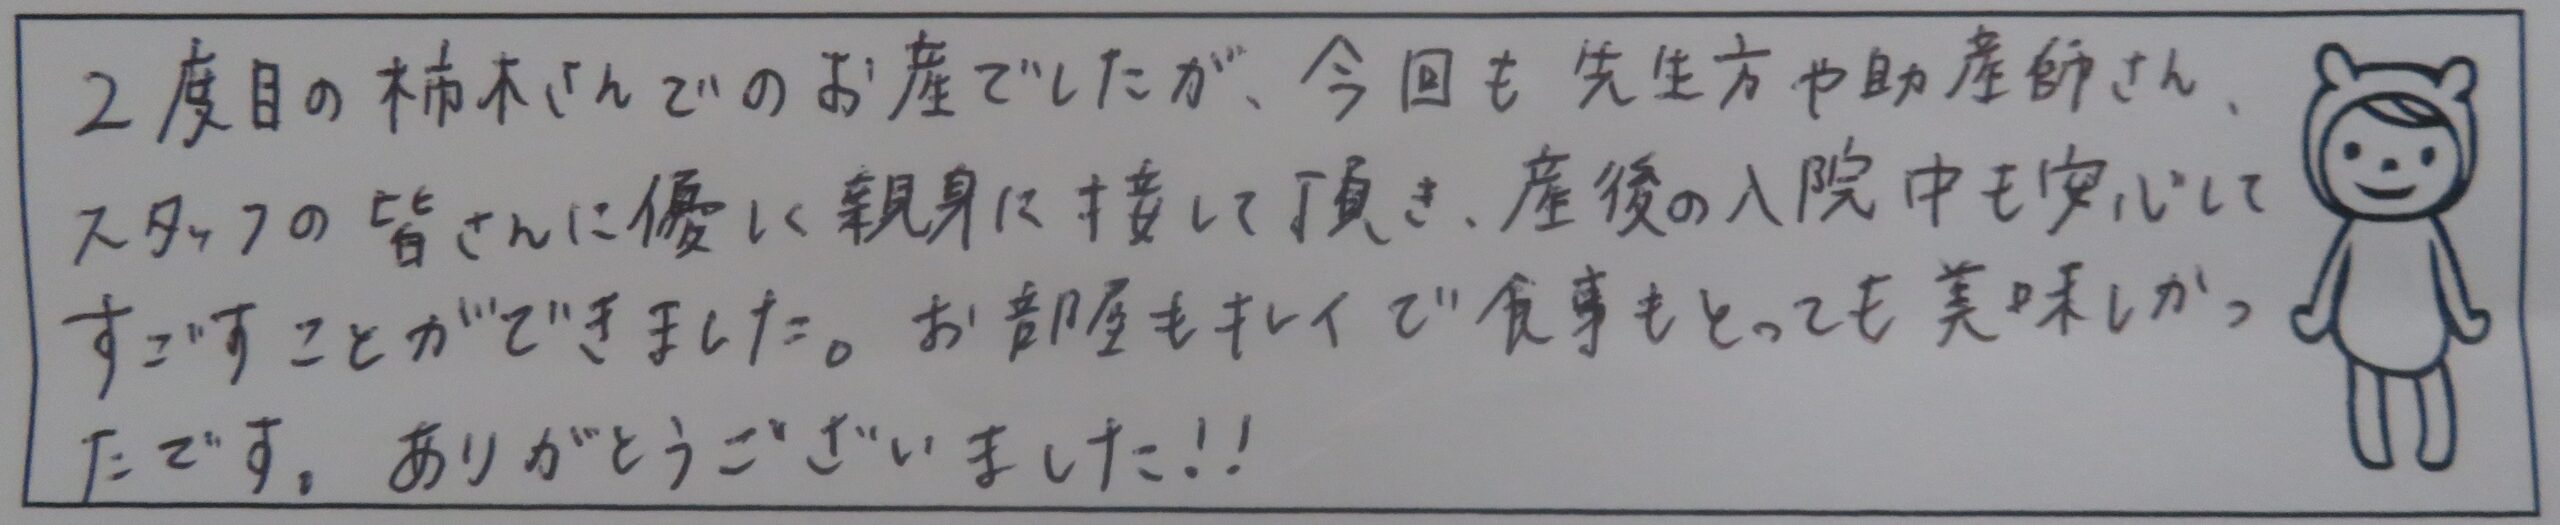 2度目の柿木さんでのお産でしたが、今回も先生方や助産師さん、
スタッフの皆さんに優しく親身に接して頂き、産後の入院中も安心して
すごすことができました。お部屋もキレイで食事もとっても美味しかっ
たです。ありがとうございました!!